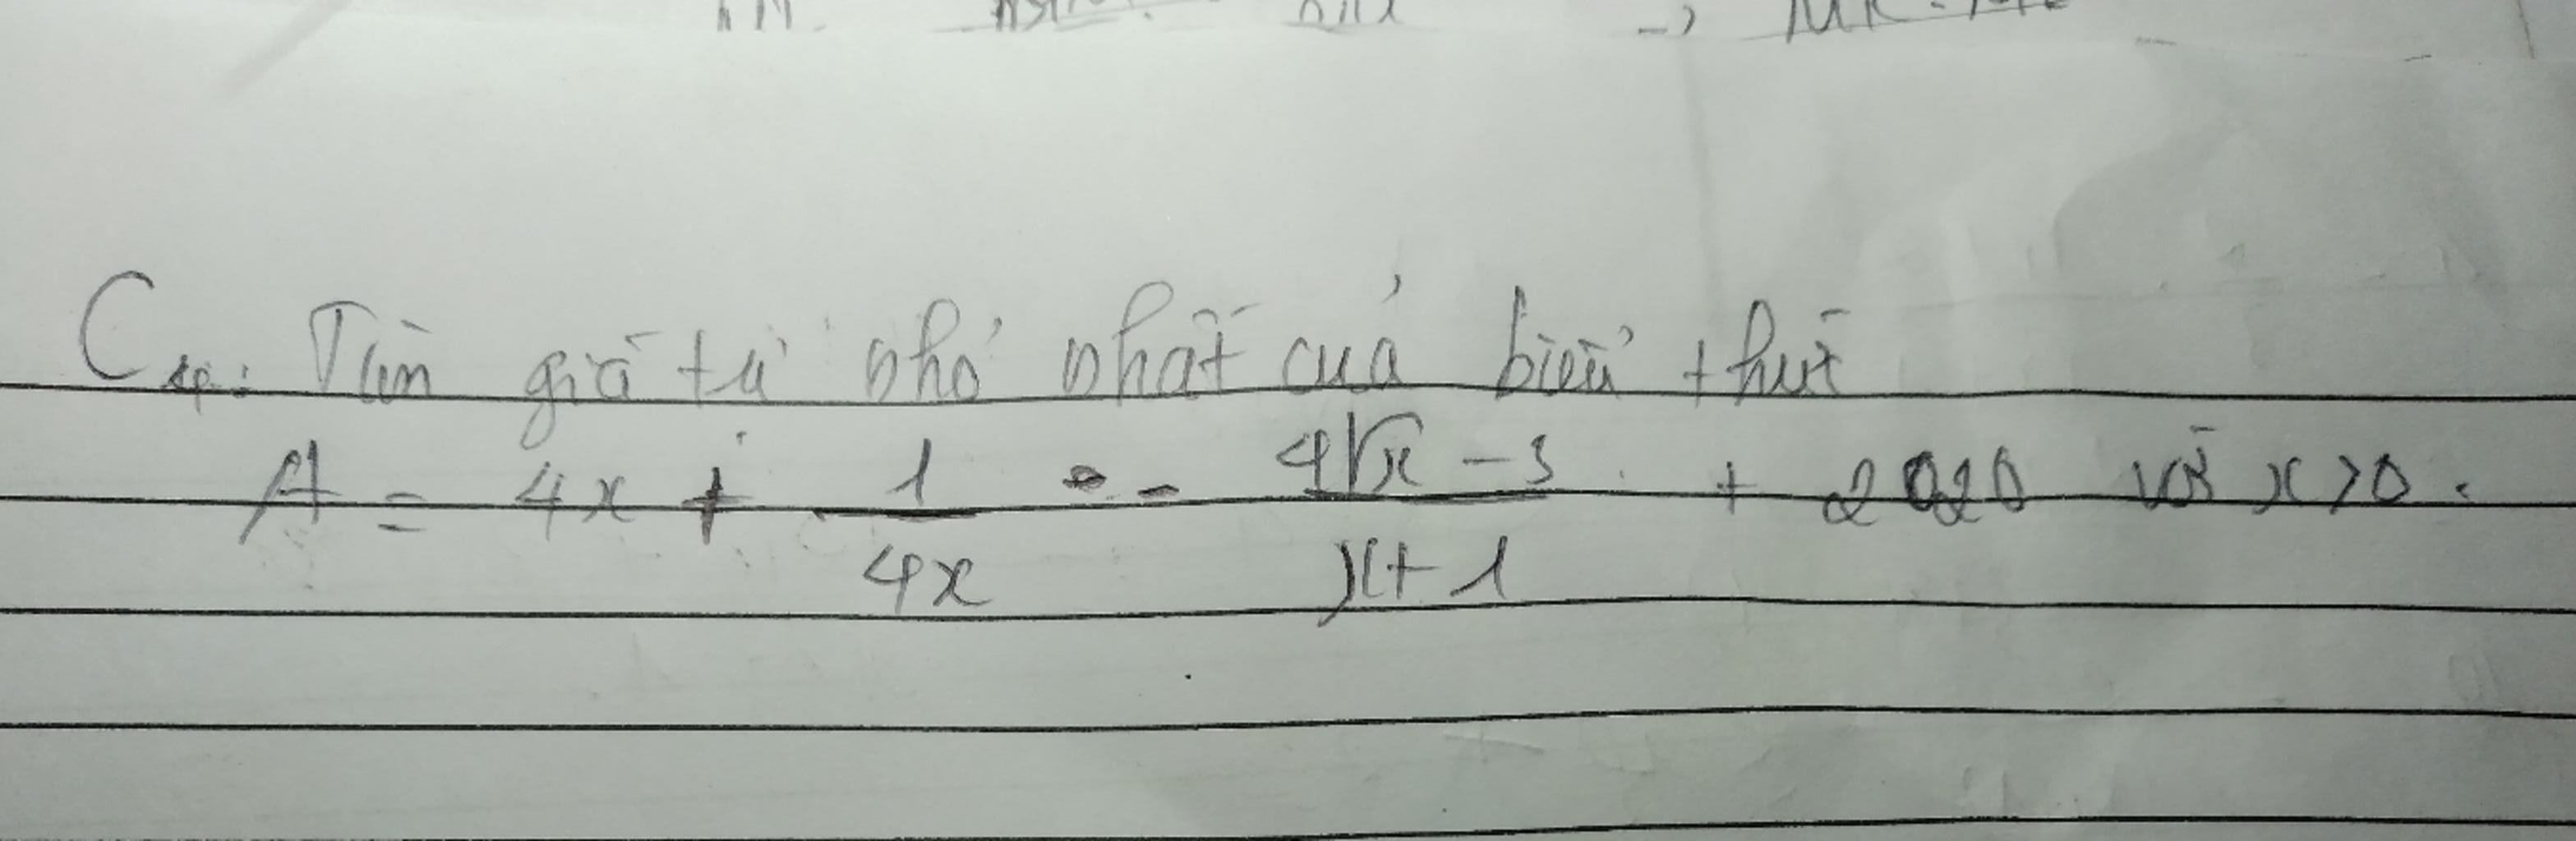 C: Tìm giá tị nhỏ nhất củả biểu thức
A = 4x + 1/4x - (4√x - 3)/(x+1) + 2020 với x > 0.